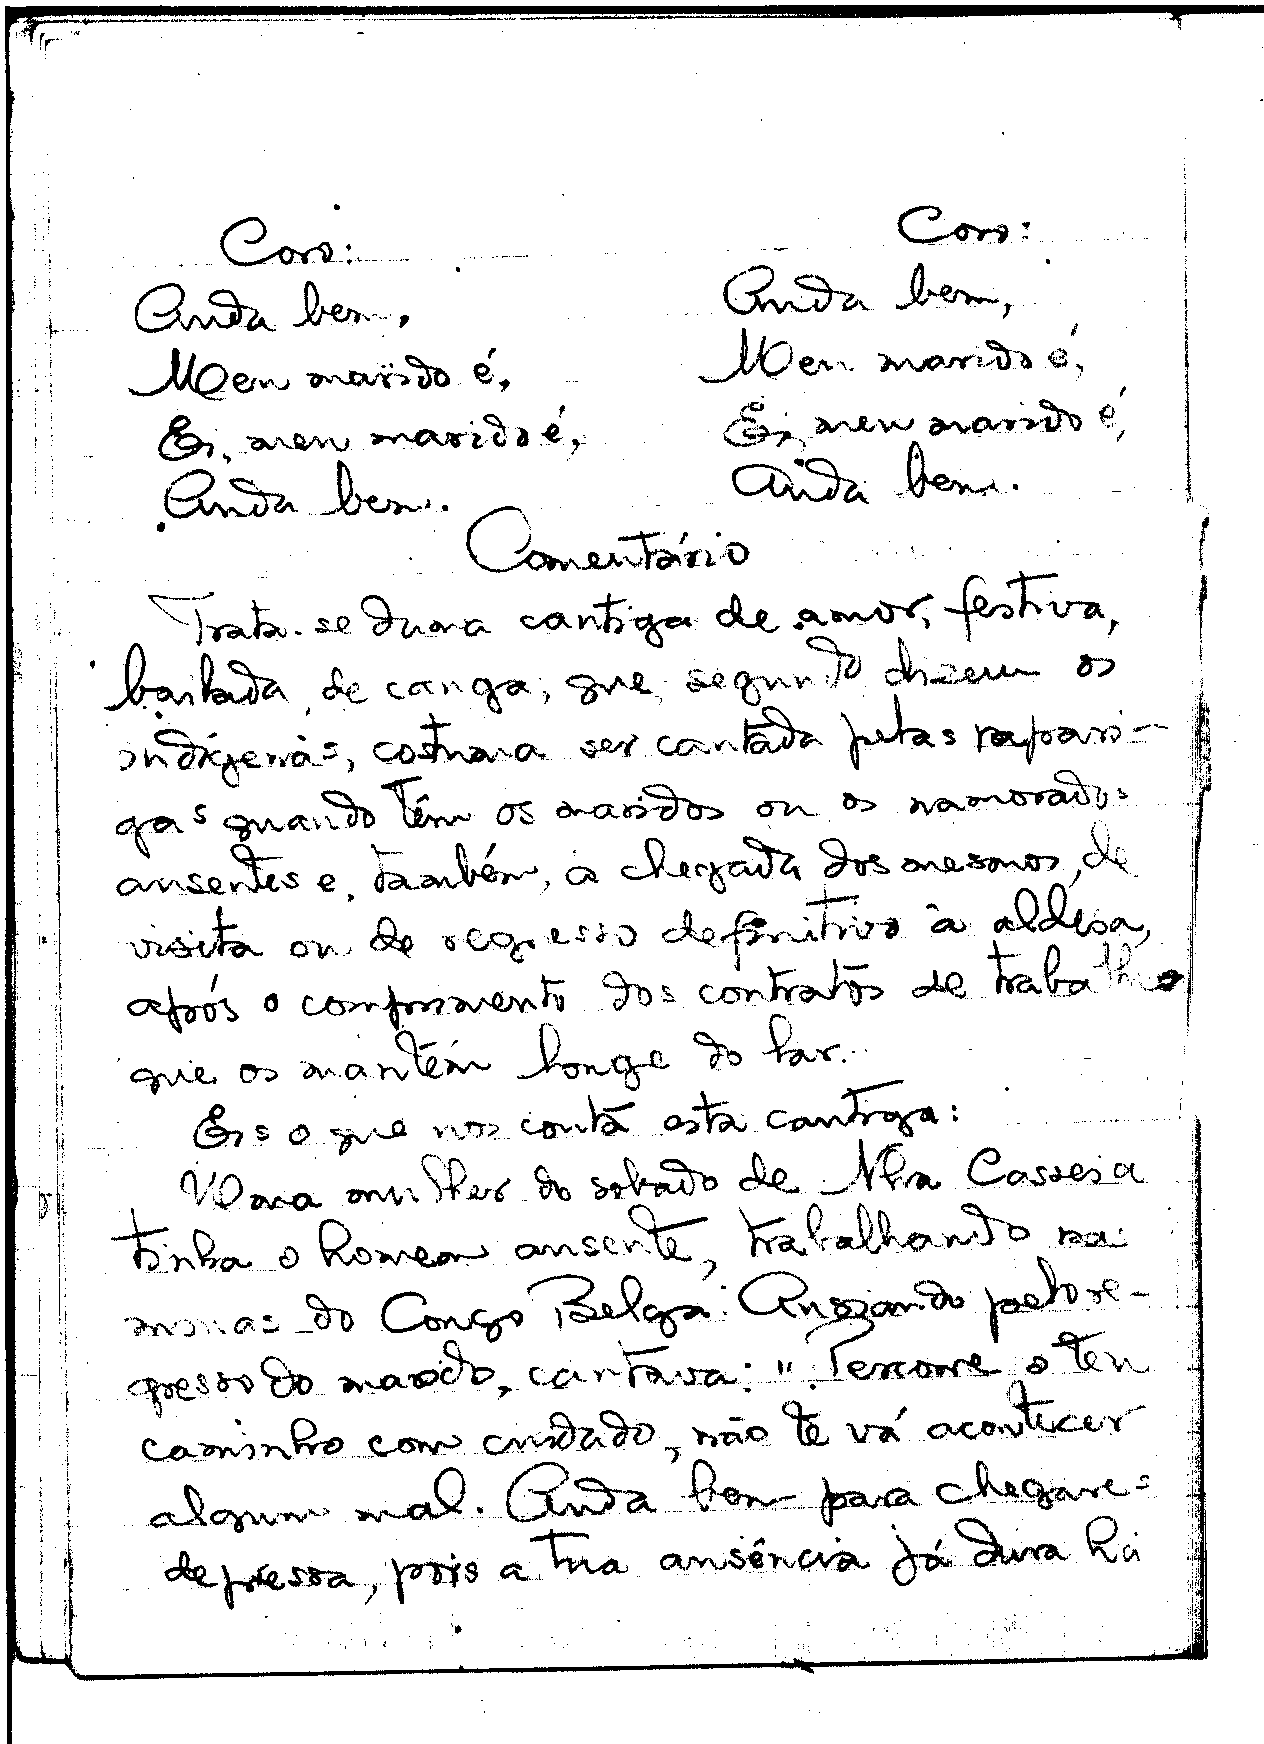 Coro:
Anda bem,
Meu marido é,
Ei, meu marido é,
Anda bem.
Coro:
Anda bem,
Meu marido é,
Ei, meu marido é,
Anda bem.
Comentário
Trata-se duma cantiga de amor, festiva,
bailada, de canga, que, segundo dizem os
indígenas, costuma ser cantada pelas rapari-
gas quando têm os maridos ou os namorados
ausentes e, também, à chegada dos mesmos, de
visita ou de regresso definitivo à aldeia,
após o comprimento dos contratos de trabalho
que os mantém longe do lar.
Eis o que nos conta esta cantiga:
Uma mulher do sobado de Nha Casseia
tinha o homem ausente, trabalhando na
minas do Congo Belga. Ansiando pelo re-
gresso do marido, cantava: "Percorre o teu
caminho com cuidado, não te vá acontecer
algum mal. Anda bem para chegares
depressa, pois a tua ausência já dura há